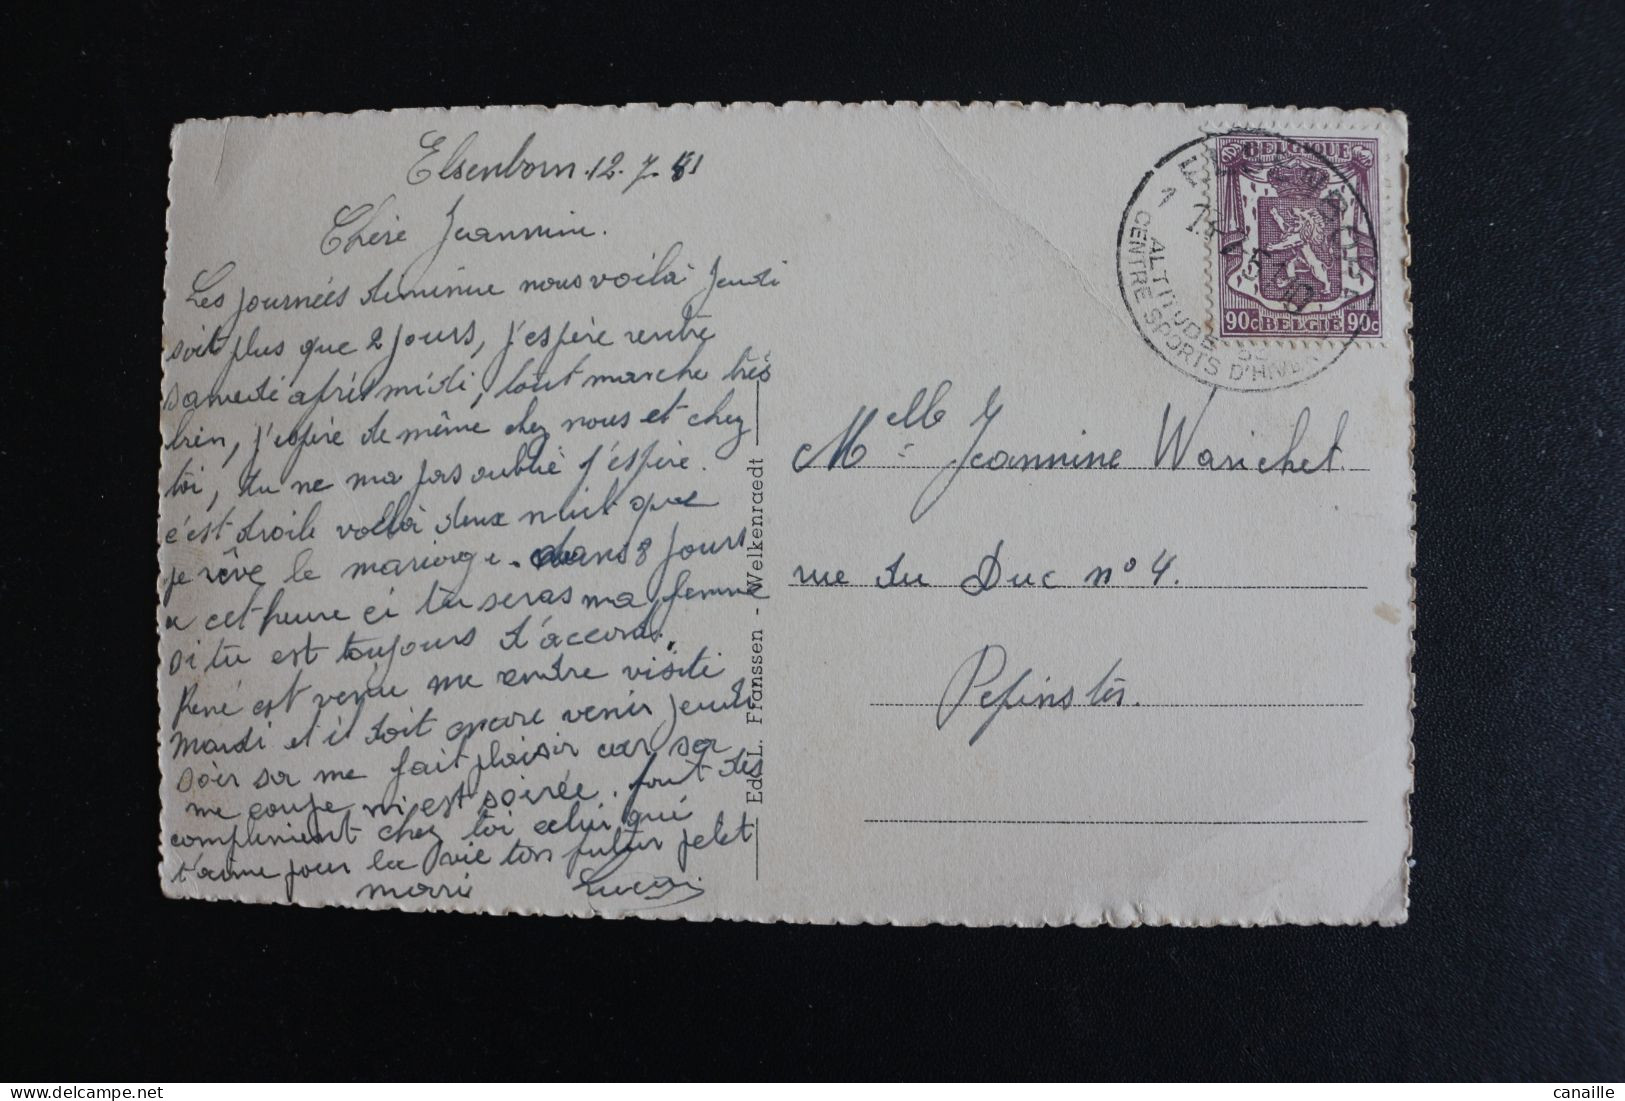 Elsenborn. 12. 7. 51
Chère Jeannine.
Les journées diminue nous voilà Jeudi
soit plus que 2 jours, j'espère rentre
samedi après midi, tout marche très
bien, j'espère de même chez nous et chez
toi, tu ne ma pas oublié j'espère.
c'est droile voilà deux nuit que
je rêve le mariage. dans 8 jours
a cet heure ci tu seras ma femme
si tu est toujours d'accord.
René est venu me rendre visite
mardi et il doit encore venir jeudi
soir sa me fait plaisir car sa
me coupe m'est soirée. fait des
compliment chez toi celui qui
t'aime pour la vie ton futur petet
marri Lucien
Ed. L. Franssen - Welkenraedt
BELGIQUE
90c BELGIE 90c
ELSENBORN
ALTITUDE
CENTRE SPORTS D'HIVER
Melle Jeannine Warichet
rue du Duc n° 4.
Pepinster.
canaille